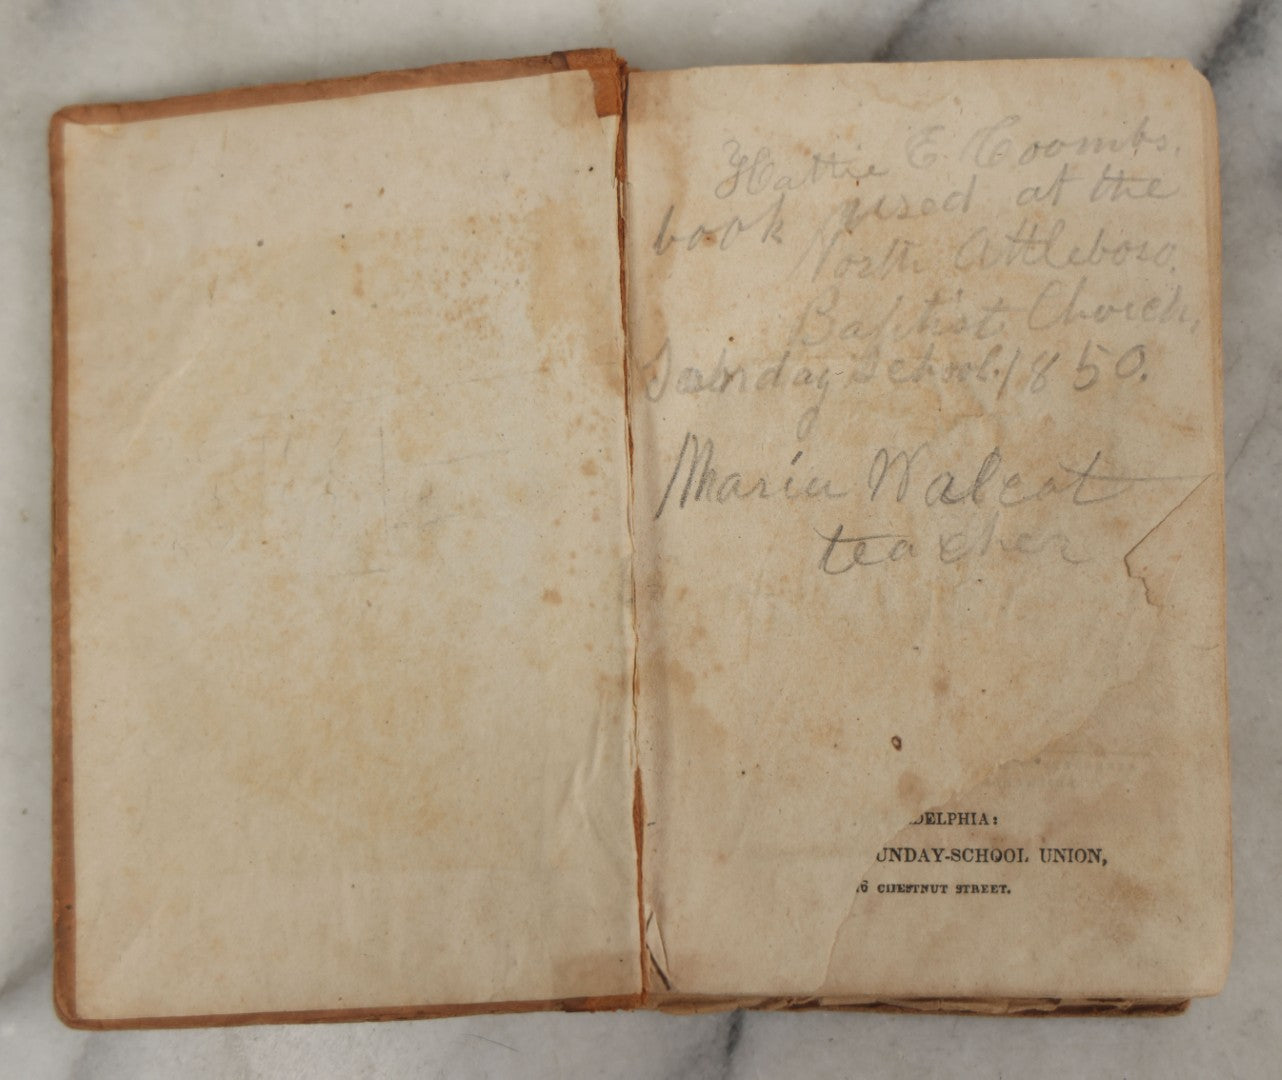 Hattie E. Coombs.
book used at the
North Attleboro.
Baptist Church,
Sabnday School. 1850.
Maria Walcot
teacher
DELPHIA:
UNDAY-SCHOOL UNION,
6 CHESTNUT STREET.